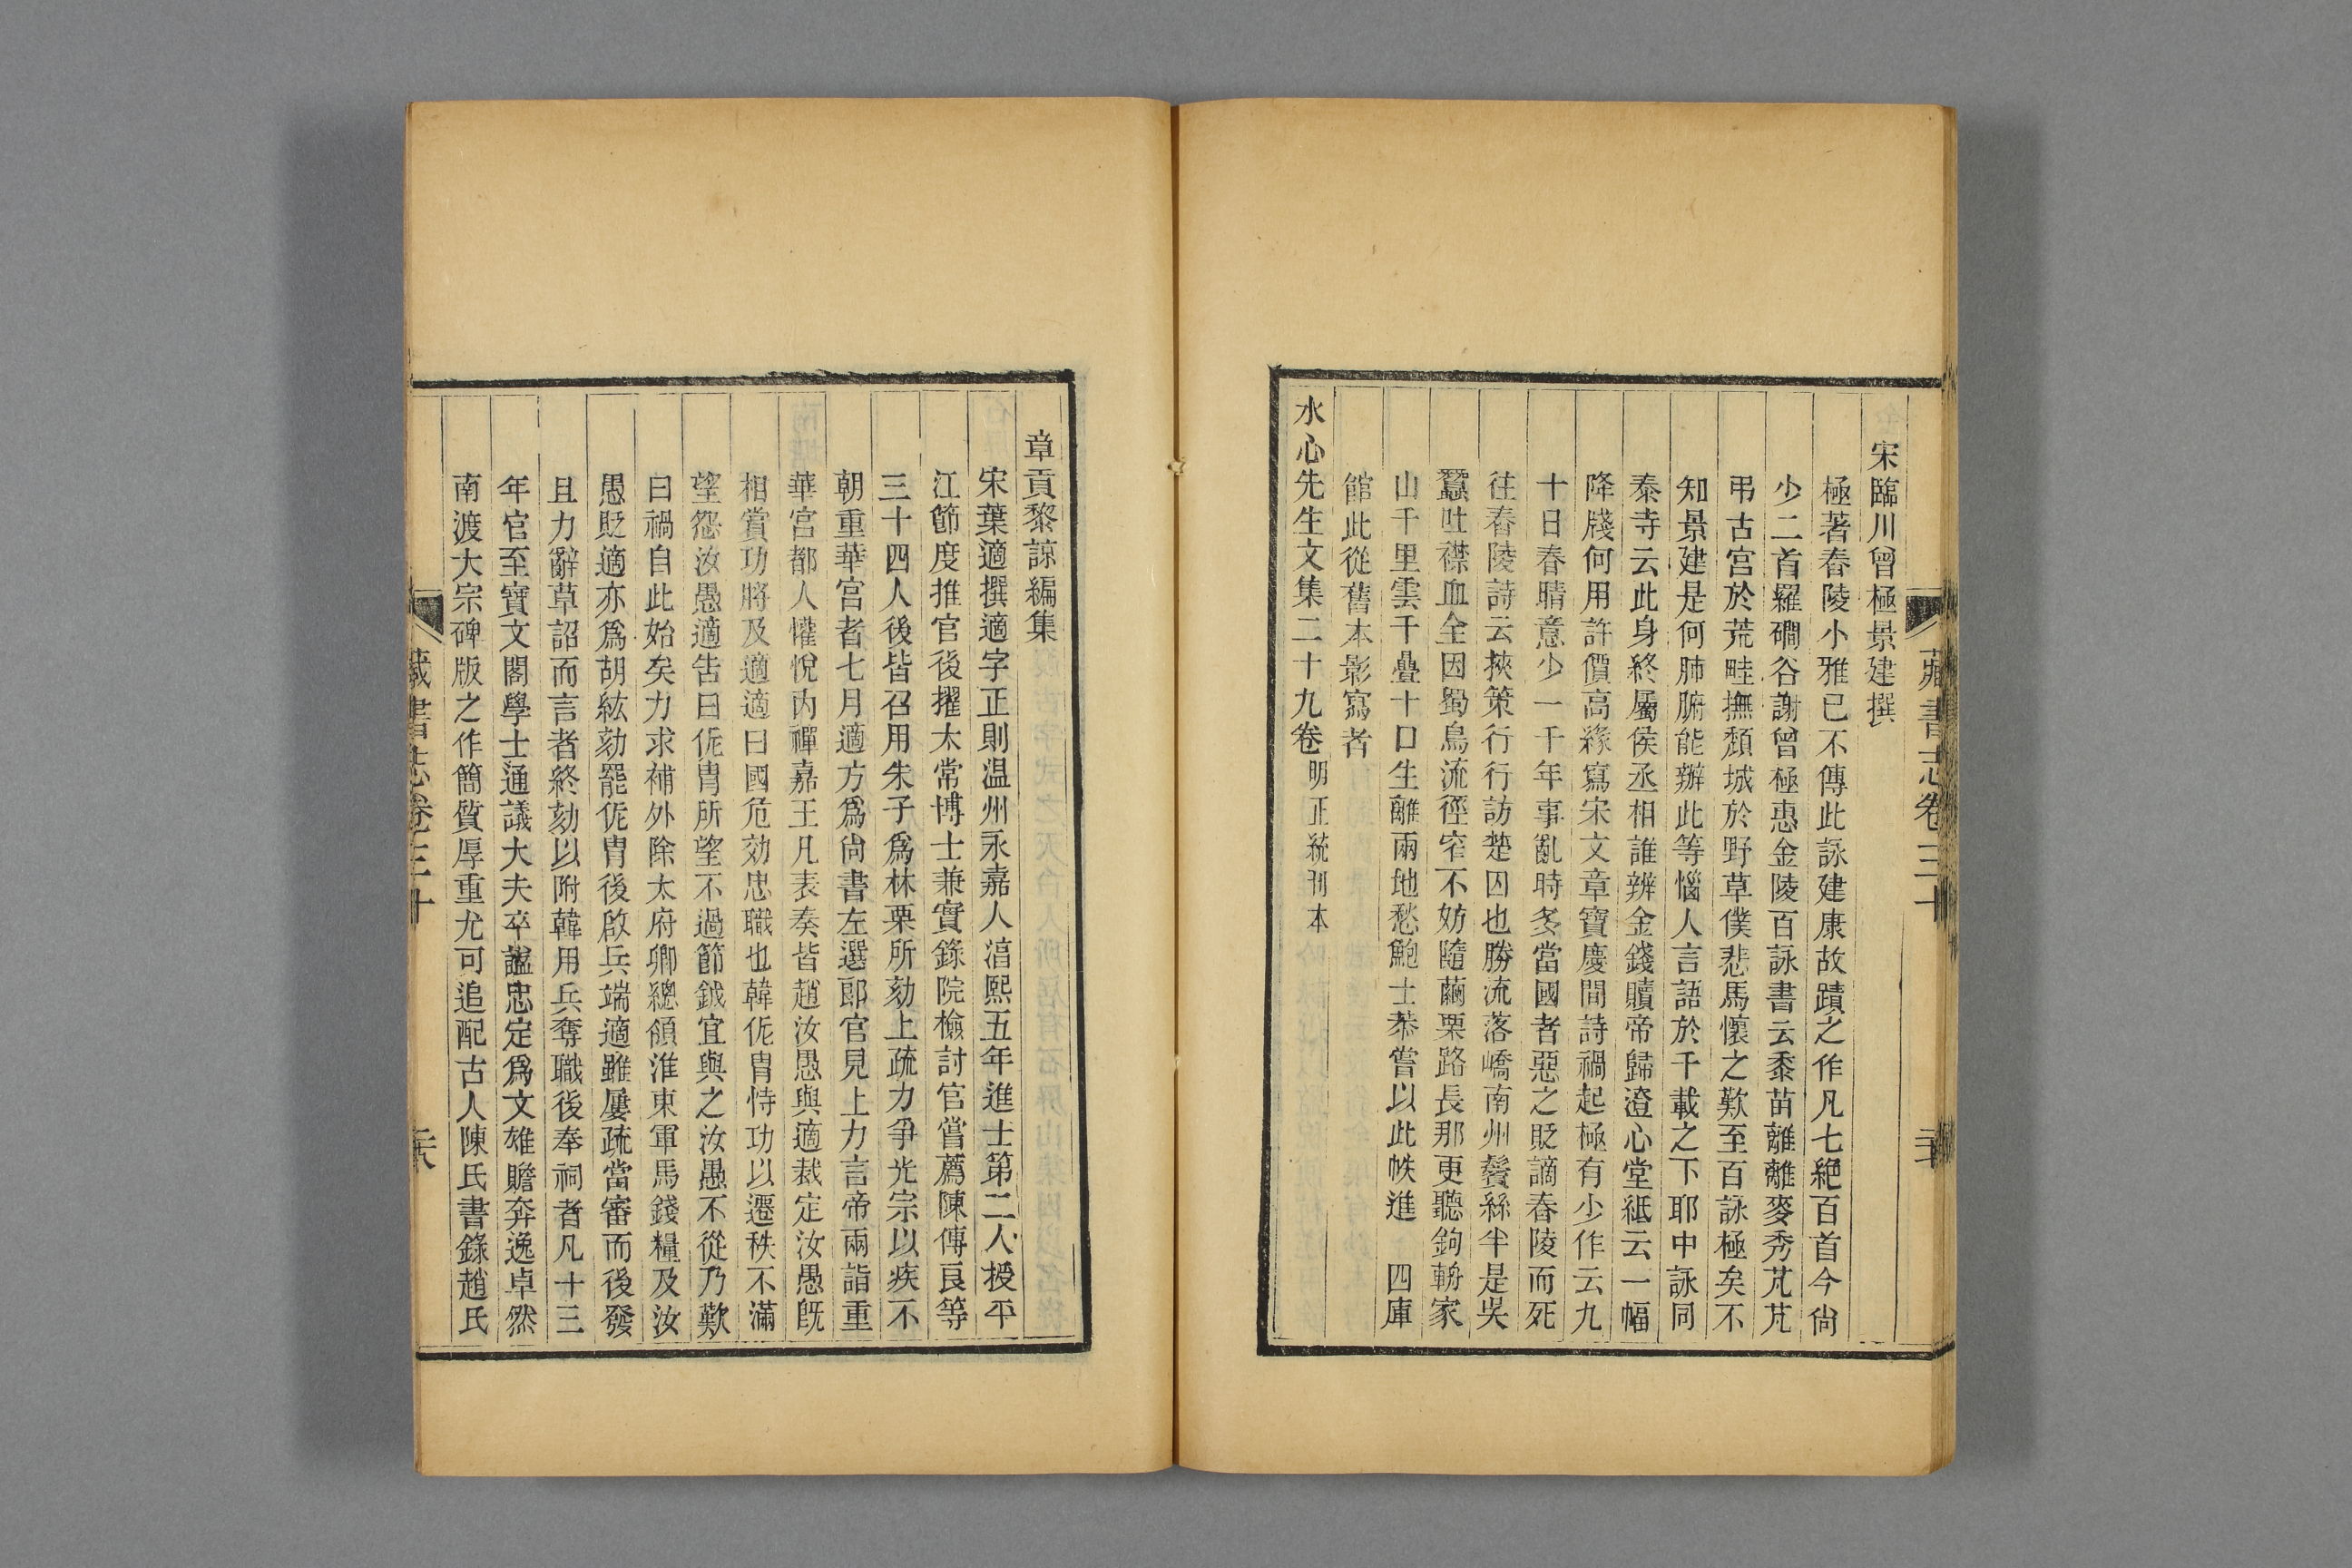 宋臨川曾極景建撰
極著春陵小雅已不傳此詠建康故蹟之作凡七絕百首今尙
少二首羅磵谷謝曾極惠金陵百詠書云黍苗離離麥秀芃芃
弔古宮於荒畦撫頹城於野草僕悲馬懷之歎至百詠極矣不
知景建是何肺腑能辦此等惱人言語於千載之下耶中詠同
泰寺云此身終屬侯丞相誰辨金錢贖帝歸澄心堂紙云一幅
降牋何用許價高緣寫宋文章寶慶間詩禍起極有少作云九
十日春晴意少一千年事亂時多當國者惡之貶謫春陵而死
往春陵詩云挾策行行訪楚囚也勝流落嶠南州鬢絲半是吳
蠶吐襟血全因蜀鳥流徑窄不妨隨繭栗路長那更聽鉤輈家
山千里雲千疊十口生離兩地愁鮑士恭嘗以此帙進 四庫
館此從舊本影寫者
水心先生文集二十九卷 明正統刊本
藏書志卷三十
章貢黎諒編集
宋葉適撰適字正則温州永嘉人淳熙五年進士第二人授平
江節度推官後擢太常博士兼實錄院檢討官嘗薦陳傅良等
三十四人後皆召用朱子爲林栗所劾上疏力爭光宗以疾不
朝重華宮者七月適方爲尙書左選郎官見上力言帝兩詣重
華宮都人懽悅内禪嘉王凡表奏皆趙汝愚與適裁定汝愚旣
相賞功將及適適曰國危効忠職也韓侂胄恃功以遷秩不滿
望怨汝愚適告曰侂胄所望不過節鉞宜與之汝愚不從乃歎
曰禍自此始矣力求補外除太府卿總領淮東軍馬錢糧及汝
愚貶適亦爲胡紘劾罷侂胄後啟兵端適雖屢疏當審而後發
且力辭草詔而言者終劾以附韓用兵奪職後奉祠者凡十三
年官至寶文閣學士通議大夫卒諡忠定爲文雄贍奔逸卓然
南渡大宗碑版之作簡質厚重尤可追配古人陳氏書錄趙氏
藏書志卷三十